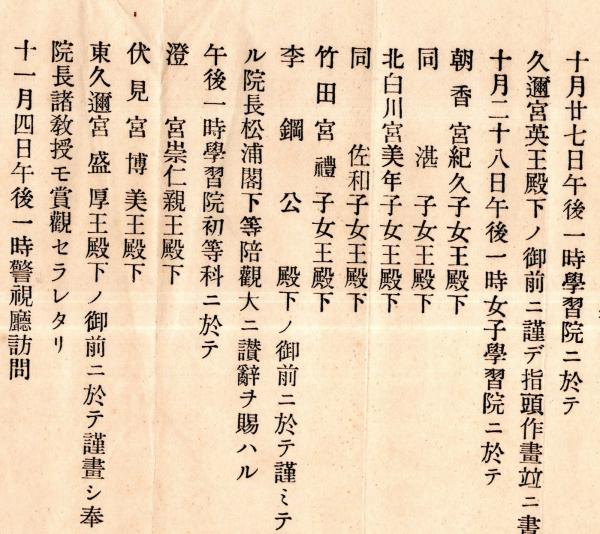 十月廿七日午後一時學習院ニ於テ
久邇宮英王殿下ノ御前ニ謹デ指頭作畫竝ニ書
十月二十八日午後一時女子學習院ニ於テ
朝香宮紀久子女王殿下
同 湛子女王殿下
北白川宮美年子女王殿下
同 佐和子女王殿下
竹田宮禮子女王殿下
李鍝公殿下ノ御前ニ於テ謹ミテ
ル院長松浦閣下等陪觀大ニ讃辭ヲ賜ハル
午後一時學習院初等科ニ於テ
澄宮崇仁親王殿下
伏見宮博英王殿下
東久邇宮盛厚王殿下ノ御前ニ於テ謹畫シ奉
院長諸教授モ賞觀セラレタリ
十一月四日午後一時警視廳訪問